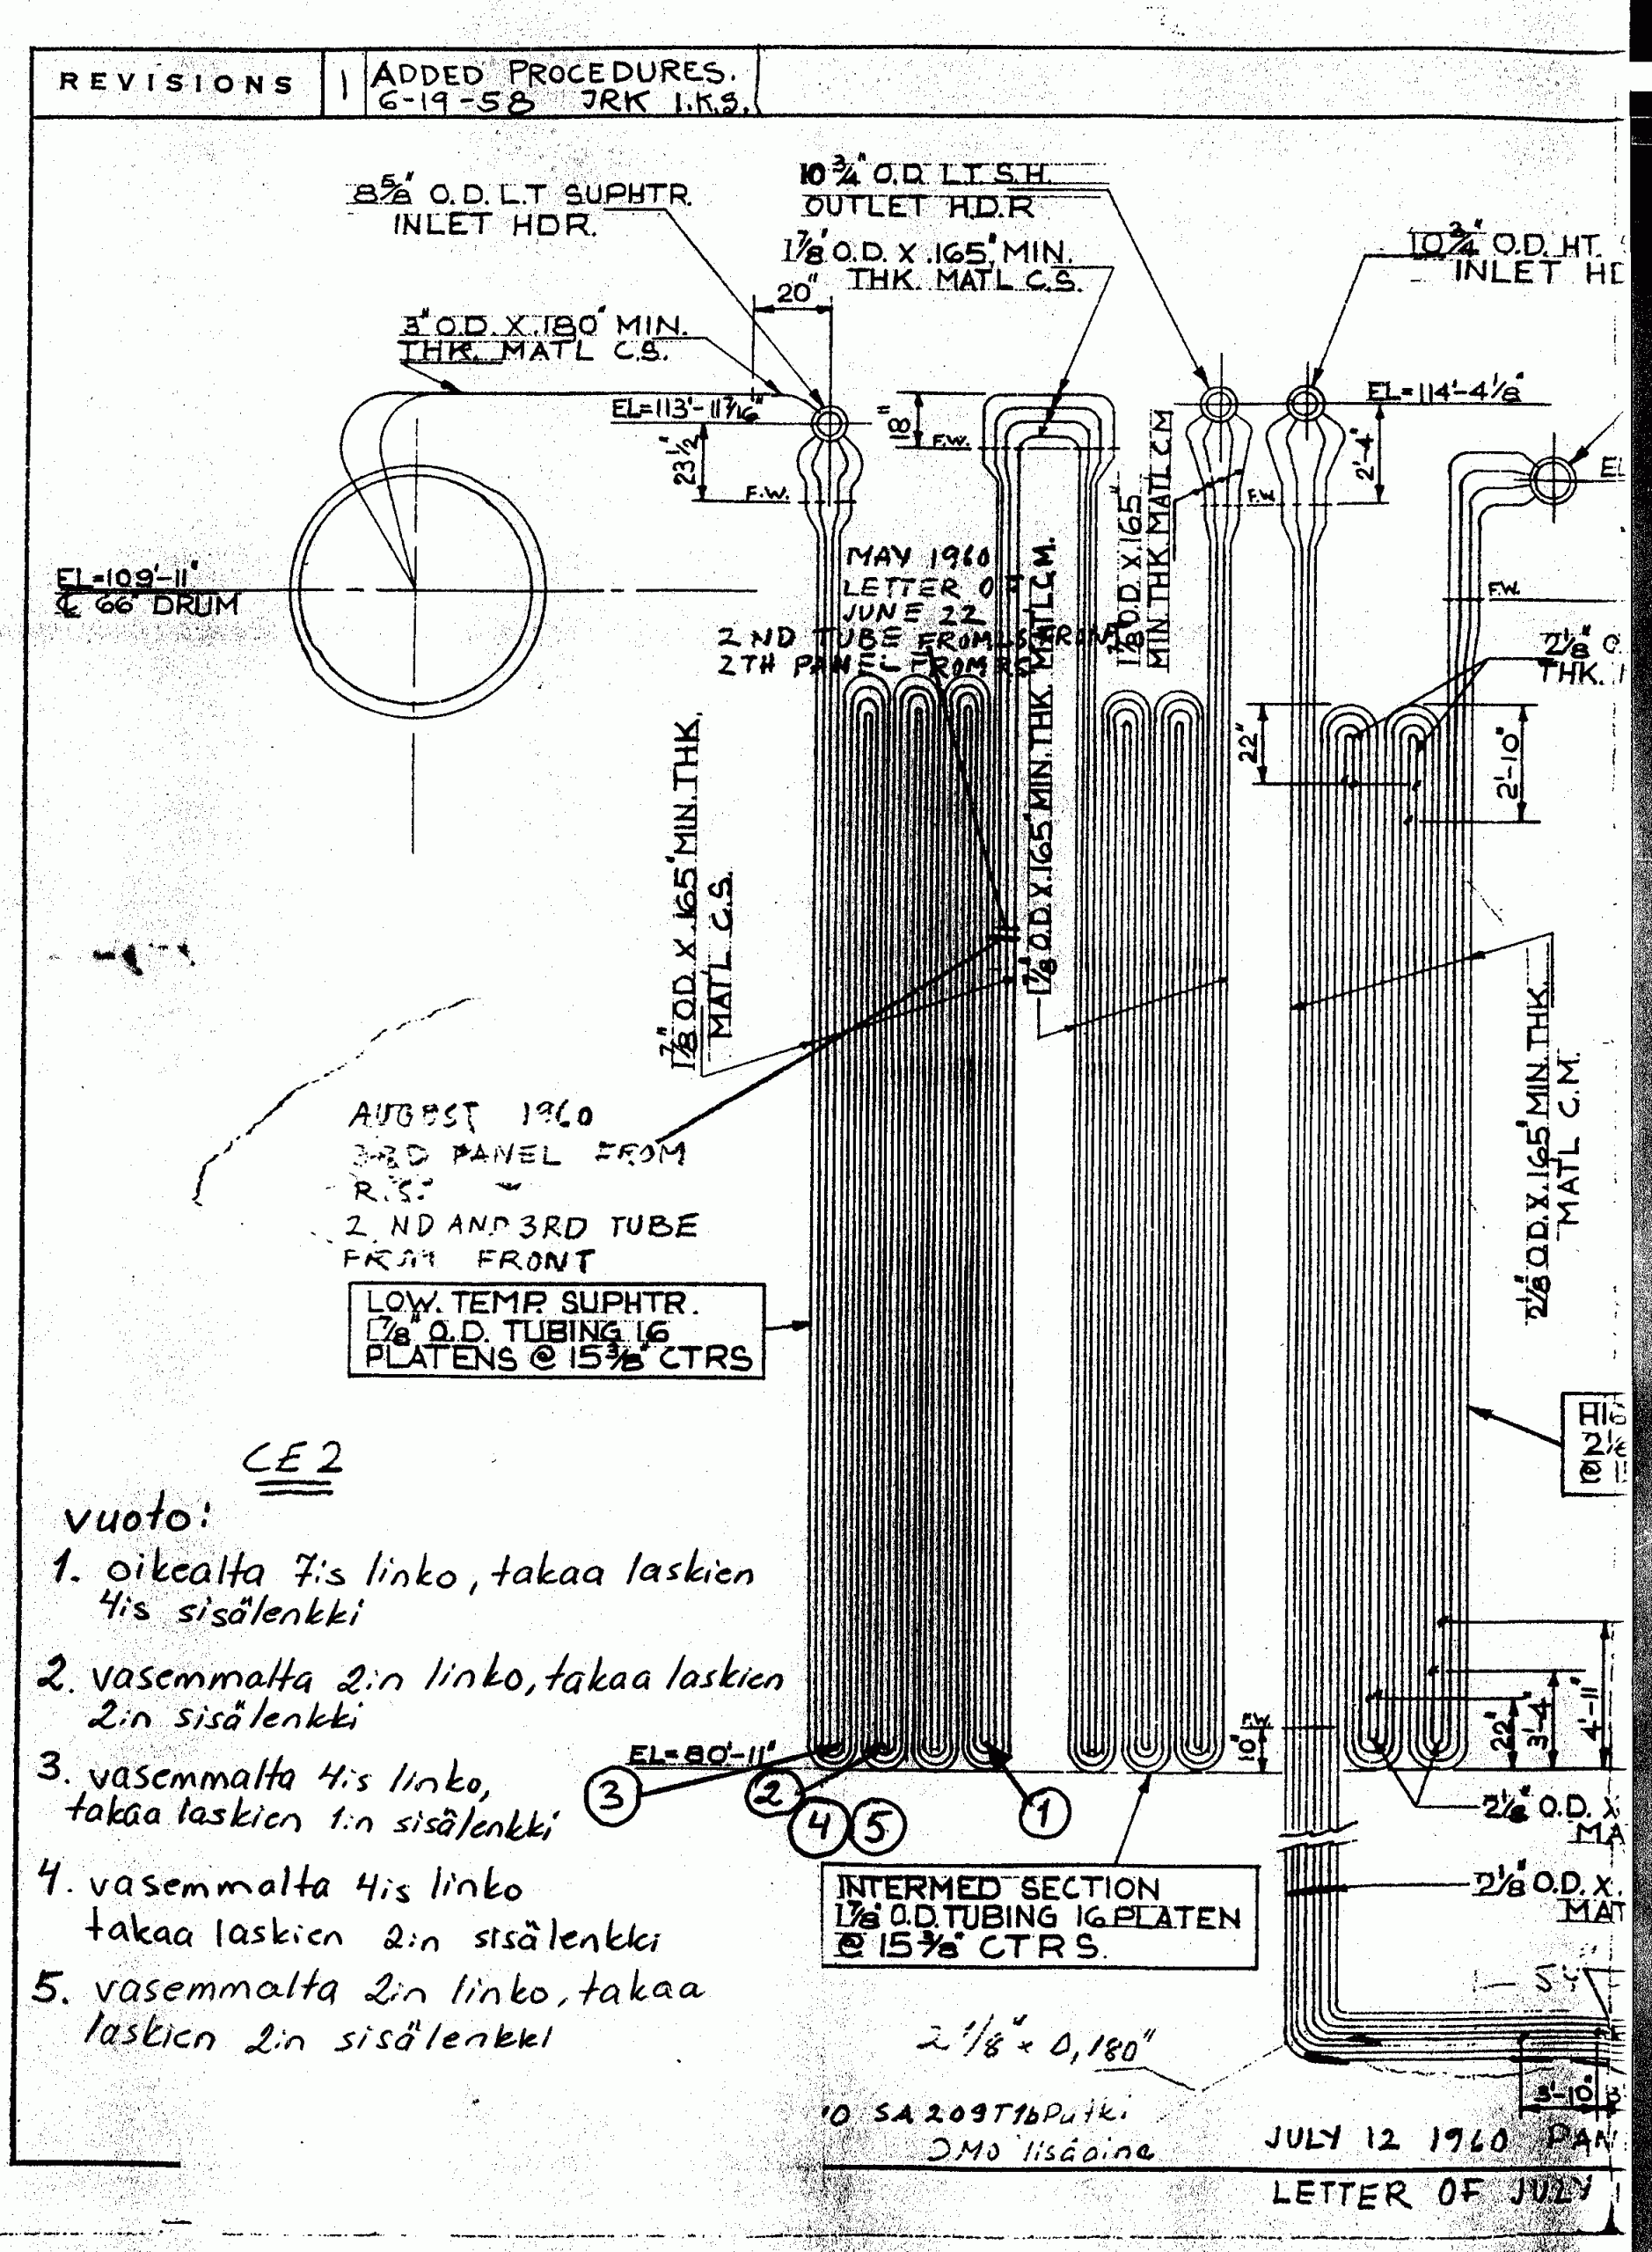 REVISIONS
1
ADDED PROCEDURES.
6-19-58 JRK I.K.S.
8 5/8" O.D. L.T SUPHTR.
INLET HDR.
10 3/4" O.D. L.T. S.H.
OUTLET H.D.R
1 7/8" O.D. X .165" MIN.
THK. MATL C.S.
10 3/4" O.D. HT.
INLET
20"
3" O.D. X .180" MIN.
THK. MATL C.S.
EL=113'-11 7/16"
EL=114'-4 1/8"
18"
23 1/2"
2'-4"
F.W.
F.W.
F.W.
F.W.
EL=109'-11"
℄ 66" DRUM
MAY 1960
LETTER OF
JUNE 22
2 ND TUBE FROM FRONT
2TH PANEL FROM RS
1 7/8" O.D. X .165"
MIN. THK. MATL C.M
2 1/8"
THK.
22"
2'-10"
1 7/8" O.D. X .165" MIN. THK.
MAT'L C.S.
1 7/8" O.D. X .165" MIN. THK. MATL C.M.
2 1/8" O.D. X .165" MIN. THK.
MATL C.M.
AUGUST 1960
3RD PANEL FROM
R.S.
2 ND AND 3RD TUBE
FROM FRONT
LOW. TEMP. SUPHTR.
1 7/8" O.D. TUBING 16
PLATENS @ 15 3/8" CTRS
CE 2
vuoto:
1. oikealta 7:s linko, takaa laskien
4:s sisälenkki
2. vasemmalta 2:n linko, takaa laskien
2:n sisälenkki
3. vasemmalta 4:s linko,
takaa laskien 1:n sisälenkki
4. vasemmalta 4:s linko
takaa laskien 2:n sisälenkki
5. vasemmalta 2:n linko, takaa
laskien 2:n sisälenkki
EL=80'-11"
3
2
4
5
1
F.W.
10"
22"
3'-4"
4'-11"
2 1/8" O.D. X
2 1/8" O.D. X.
INTERMED SECTION
1 7/8" O.D. TUBING 16 PLATEN
@ 15 3/8" CTRS.
2 1/8" x 0,180"
SA 209 T1b Putki
DMO lisäaine
3'-10"
JULY 12 1960
LETTER OF JULY